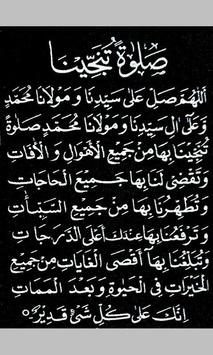 صَلٰوةُ تُنَجِّيْنَا
اَللّٰهُمَّ صَلِّ عَلٰى سَيِّدِنَا وَ مَوْلَانَا مُحَمَّدٍ
وَّعَلٰٓى اٰلِ سَيِّدِنَا وَمَوْلَانَا مُحَمَّدٍ صَلٰوةً
تُنَجِّيْنَا بِهَا مِنْ جَمِيْعِ الْاَهْوَالِ وَ الْاٰفَاتِ
وَتَقْضِىْ لَنَا بِهَا جَمِيْعَ الْحَاجَاتِ
وَتُطَهِّرُنَا بِهَا مِنْ جَمِيْعِ السَّيِّاٰتِ
وَ تَرْفَعُنَا بِهَا عِنْدَكَ اَعْلَى الدَّرَجَاتِ
وَ تُبَلِّغُنَا بِهَا اَقْصَى الْغَايَاتِ مِنْ جَمِيْعِ
الْخَيْرَاتِ فِى الْحَيٰوةِ وَ بَعْدَ الْمَمَاتِ
اِنَّكَ عَلٰى كُلِّ شَىْءٍ قَدِيْرٌ